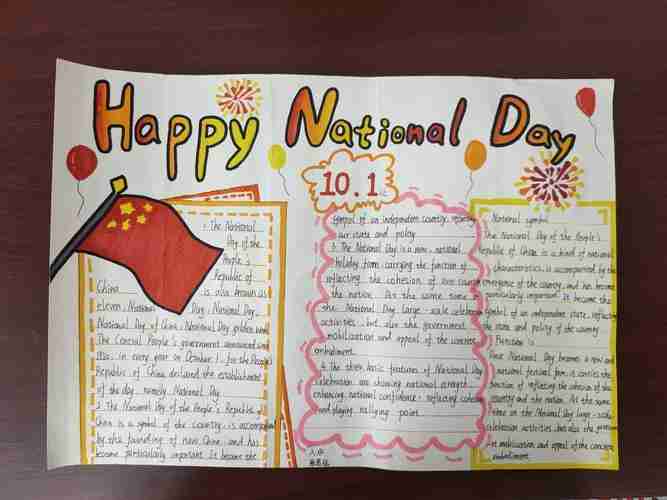 Happy National Day
10.1
1. The National
Day of the
People's
Republic of
China is also known as
eleven, National Day, National Day,
National Day of China, National Day golden week.
The Central People's government announced
in every year on October 1, for the People's
Republic of China declared the establishment
of the day, namely National Day.
2. The National Day of the People's Republic of
China is a symbol of the country, is accompanied
by the founding of new China, and has
become particularly important. It became the
symbol of an independent country, reflecting
our state and policy.
3. The National Day is a new, national
holiday form, carrying the function of
reflecting the cohesion of our country
the nation. At the same time
the National Day large scale celebration
activities, but also the government
mobilization and appeal of the concrete
embodiment.
4. The three basic features of National Day
celebration are showing national strength,
enhancing national confidence, reflecting cohesion
and playing rallying point.
National symbol
The National Day of the People's
Republic of China is a kind of national
characteristics, is accompanied by the
emergence of the country, and has become
particularly important. It became the
symbol of an independent state, reflecting
the state and polity of the country.
Function
Once National Day becomes a new and
national festival form, it carries the
function of reflecting the cohesion of the
country and the nation. At the same
time on the National Day large-scale
celebration activities, but also the government
mobilization and appeal of the concrete
embodiment.